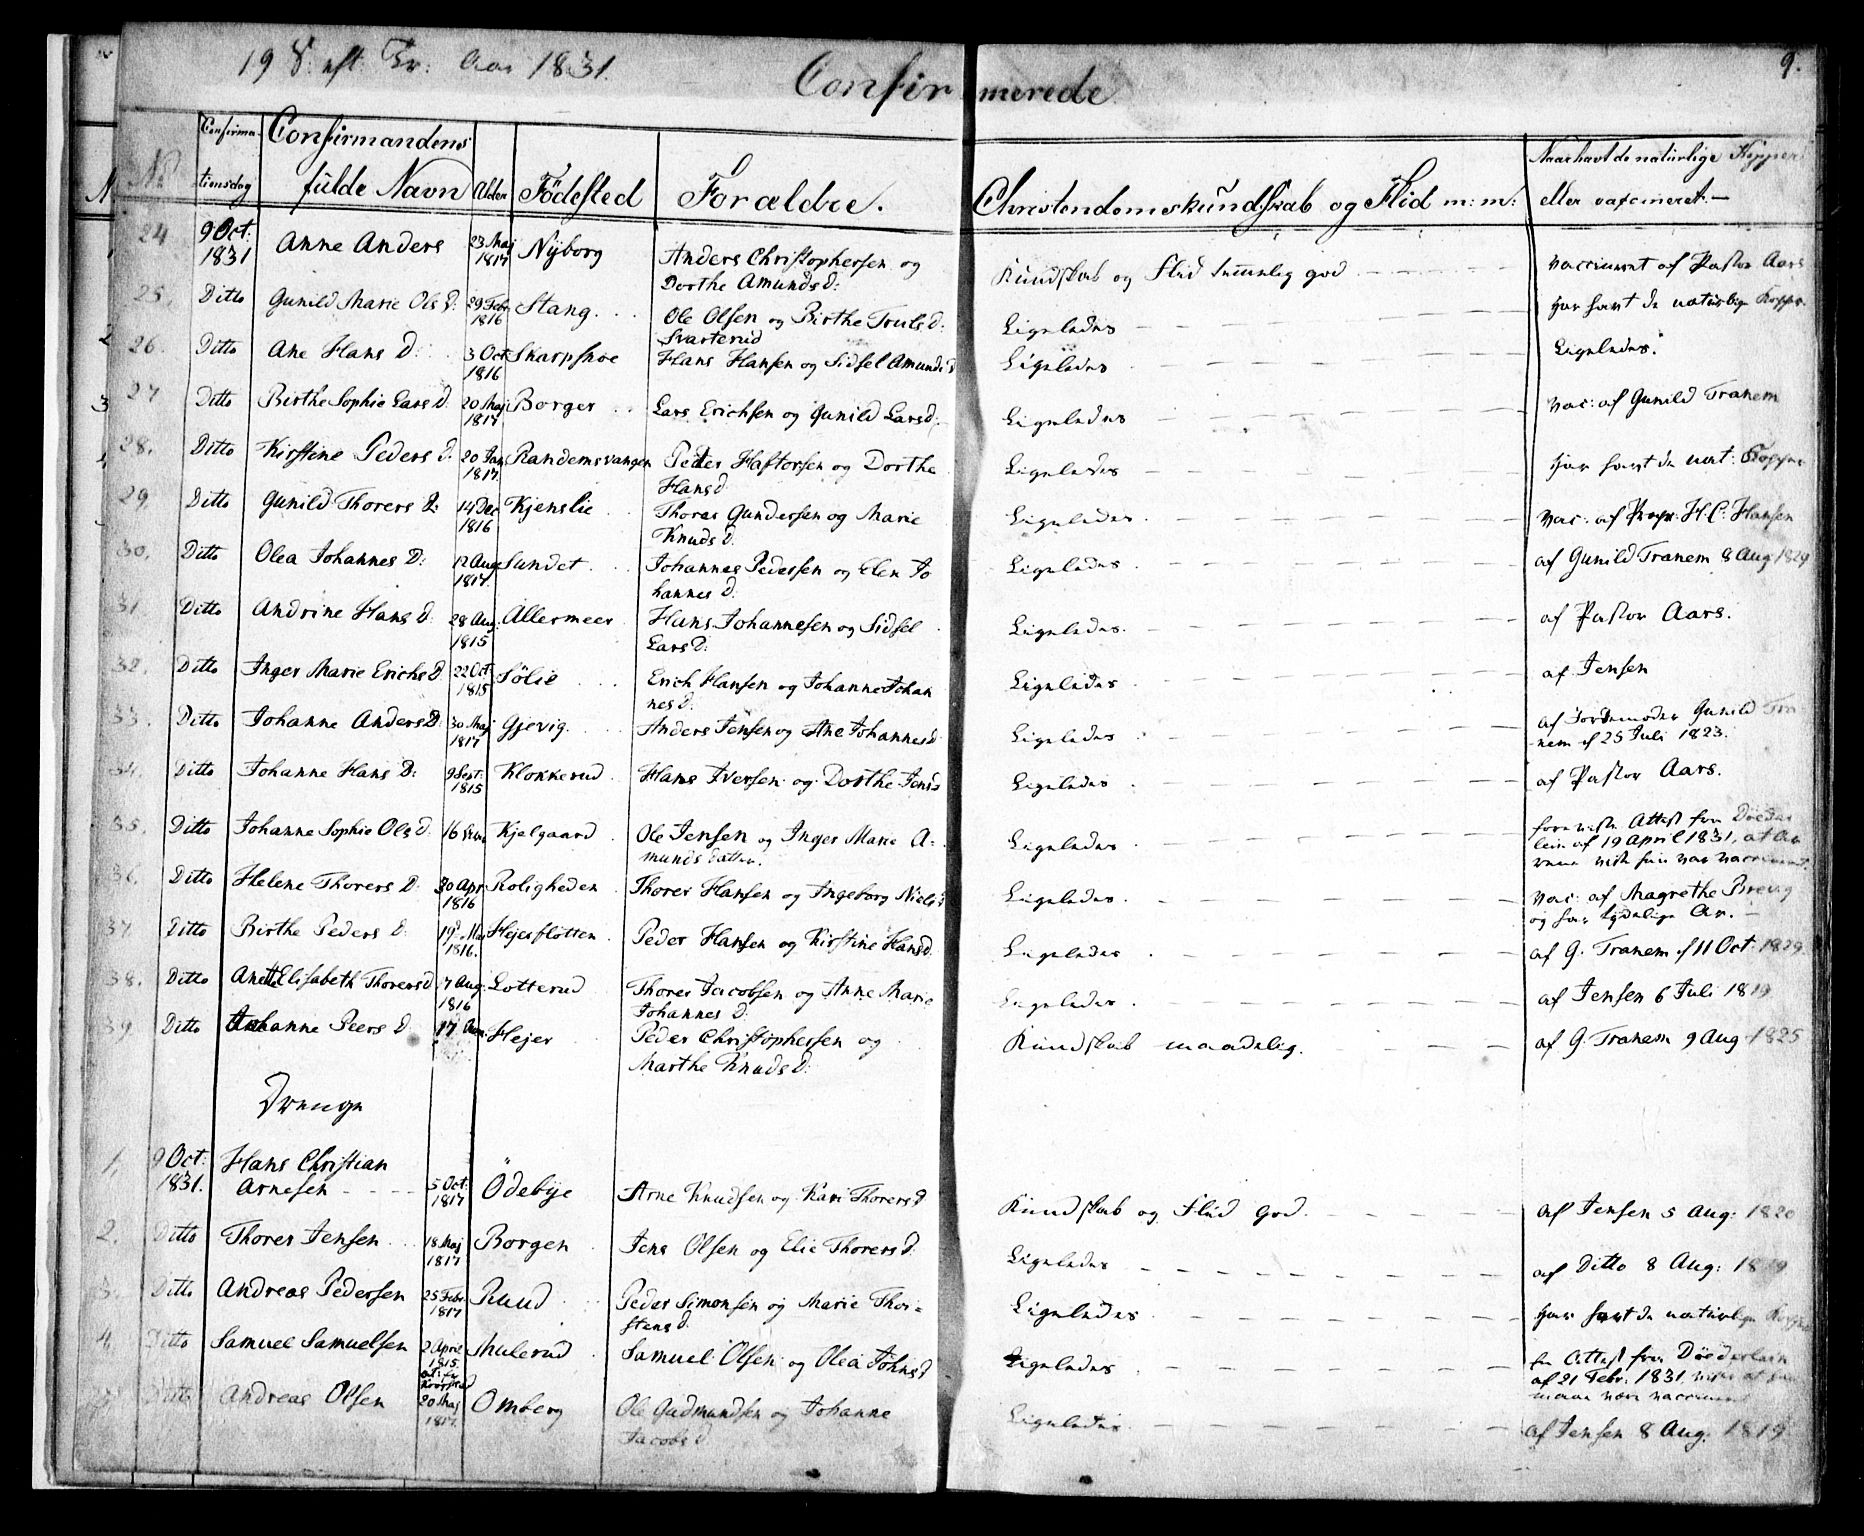 19 S: eft. Tr: Aar 1831.
9.
Confirmerede
No
Confirma-
tionsdag
Confirmandens
fulde Navn
Alder
Födested
Forældre.
Christendomskundskab og Flid m: m:
Naar havt de naturlige Kopper
eller vaccineret.—
24 9 Oct: 1831 Anne Anders 23 Maj 1817 Nÿborg Anders Christophersen og Dorthe Amunds D: Kundskab og Flid temmelig god vaccineret af Pastor Aars
25. Ditto Gunild Marie Ols D: 29 Febr 1816 Stang. Ole Olsen og Birthe Truls d: Svarterud Ligeledes har havt de naturlige Kopper
26 Ditto Ane Hans D: 3 Oct 1816 Skarpsnoe Hans Hansen og Sidsel Amunds d Ligeledes Ligeledes.
27 Ditto Birthe Sophie Lars D. 20 Maj 1817 Borger Lars Erichsen og Gunild Lars d. Ligeledes vac: af Gunild Tranem
28. Ditto Kirstine Peders D. 20 Jan 1817 Randemsvangen Peder Haftorsen og Dorthe Hans d Ligeledes har havt de nat: Kopper
29. Ditto Gunild Thorers D: 14 Dec 1816 Kjenslie Thorer Gundersen og Marie Knuds d. Ligeledes vac: af H. C. Hansen
30. Ditto Olea Johannes D: 12 Aug 1817. Sundet Johannes Pedersen og Elen Johannes d. Ligeledes af Gunild Tranem 8 Aug 1829
31. Ditto Andrine Hans d. 28 Aug: 1815 Allermeer Hans Johannesen og Sidsel Lars D: Ligeledes. af Pastor Aars.
32. Ditto Inger Marie Erichs D 22 Oct 1815 Sölie Erich Hansen og Johanne Johannes d: Ligeledes af Jensen
33. Ditto Johanne Anders D. 30 Maj 1817 Gjevig. Anders Jensen og Ane Johannes d Ligeledes af Jordemoder Gunild Tranem d 25 Juli 1823.
34. Ditto Johanne Hans D: 9 Sept: 1815 Klokkerud Hans Iversen og Dorthe Jens d Ligeledes af Pastor Aars.
35. Ditto Johanne Sophie Ols d. 16 Kjelgaard Ole Jensen og Inger Marie Amunds datter. Ligeledes foreviste Attest fra Döderlein af 19 April 1831, at var vaccineret.
36. Ditto Helene Thorers D. 30 Apr 1816 Roligheden Thorer Hansen og Ingeborg Niels d Ligeledes. vac: af Magrethe Brevig og har tydelige Ar.
37. Ditto Birthe Peders D: 19 1816. Hejersletten Peder Hansen og Kirstine Hans d. Ligeledes af G. Tranem d 11 Oct 1829
38. Ditto Anette Elisabeth Thorers d 7 Aug: 1816 Lotterud Thorer Jacobsen og Anne Marie Johannes D. Ligeledes af Jensen 6 Juli 1819
39 Ditto Johanne Peers D 17 Hejer Peder Christophersen og Marthe Knuds D: Kundskab maadelig. af G. Tranem 9 Aug 1825
Drenge
1. 9 Oct: 1831. Hans Christian Arnesen 5 Oct: 1817 Ödebÿe Arne Knudsen og Kari Thorers d Kundskab og Flid god. af Jensen 5 Aug: 1820
2. Ditto Thorer Jensen 18 Maj 1817 Borgen Jens Olsen og Elie Thorers d. Ligeledes af Ditto 8 Aug: 1819
3. Ditto Andreas Pedersen 25 Febr. 1817 Ruud Peder Simonsen og Marie Thorstens d. Ligeledes har havt de naturlige
4. Ditto Samuel Samuelsen 2 April 1815. Mulerud Samuel Olsen og Olea Johns d Ligeledes Attest fra Döderlein af 21 Febr. 1831 vaccineret
Ditto Andreas Olsen 20 Maj 1817. Omberg Ole Gudmundsen og Johanne Jacobs d. Ligeledes. af Jensen 8 Aug. 1819